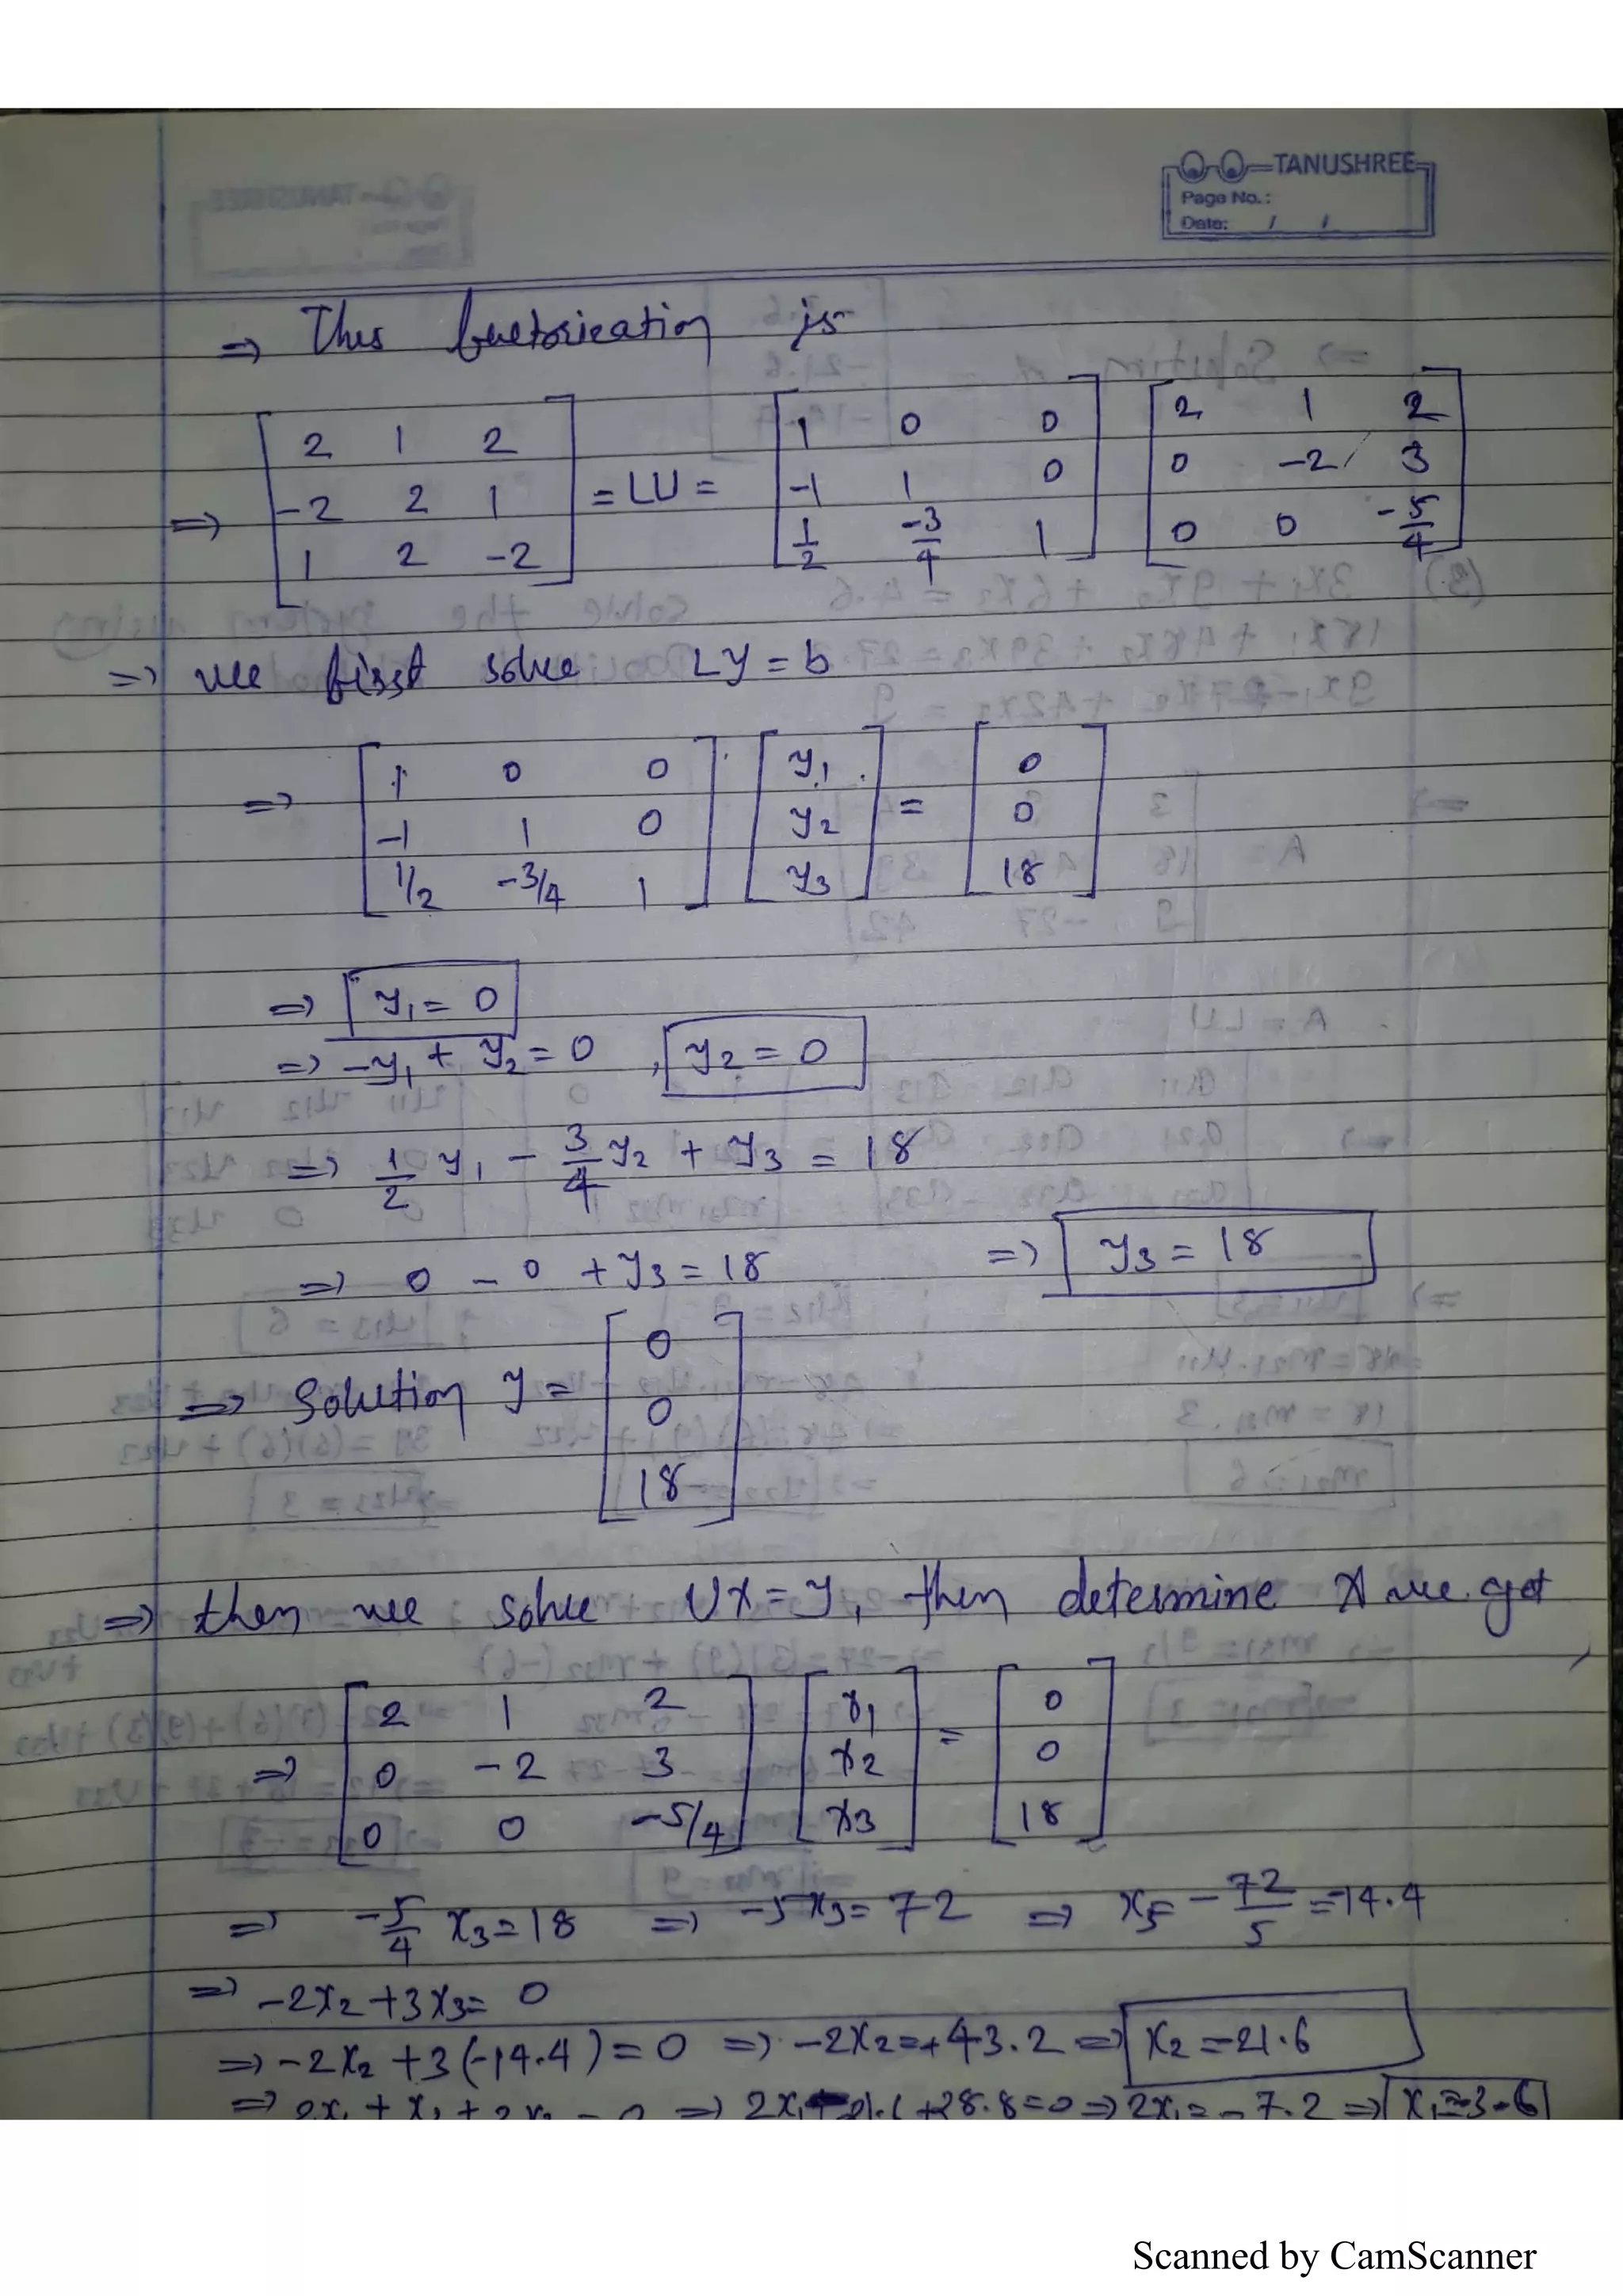 TANUSHREE
Page No.:
Date: / /
=> Thus factorization is
=> [2 1 2; -2 2 1; 1 2 -2] = LU = [1 0 0; -1 1 0; 1/2 -3/4 1] [2 1 2; 0 -2 3; 0 0 -5/4]
=> we first solve LY = b
=> [1 0 0; -1 1 0; 1/2 -3/4 1] [y1; y2; y3] = [0; 0; 18]
=> y1 = 0
=> -y1 + y2 = 0 , y2 = 0
=> 1/2 y1 - 3/4 y2 + y3 = 18
=> 0 - 0 + y3 = 18 => y3 = 18
=> Solution y = [0; 0; 18]
=> then we solve UX = y, then determine X we get
=> [2 1 2; 0 -2 3; 0 0 -5/4] [x1; x2; x3] = [0; 0; 18]
=> -5/4 x3 = 18 => -5x3 = 72 => x3 = -72/5 = -14.4
=> -2x2 + 3x3 = 0
=> -2x2 + 3(-14.4) = 0 => -2x2 = +43.2 => x2 = -21.6
=> 2x1 + x2 + 2x3 = 0 => 28.8 = 0 => 2x1 = -7.2 => x1 = -3.6
Scanned by CamScanner